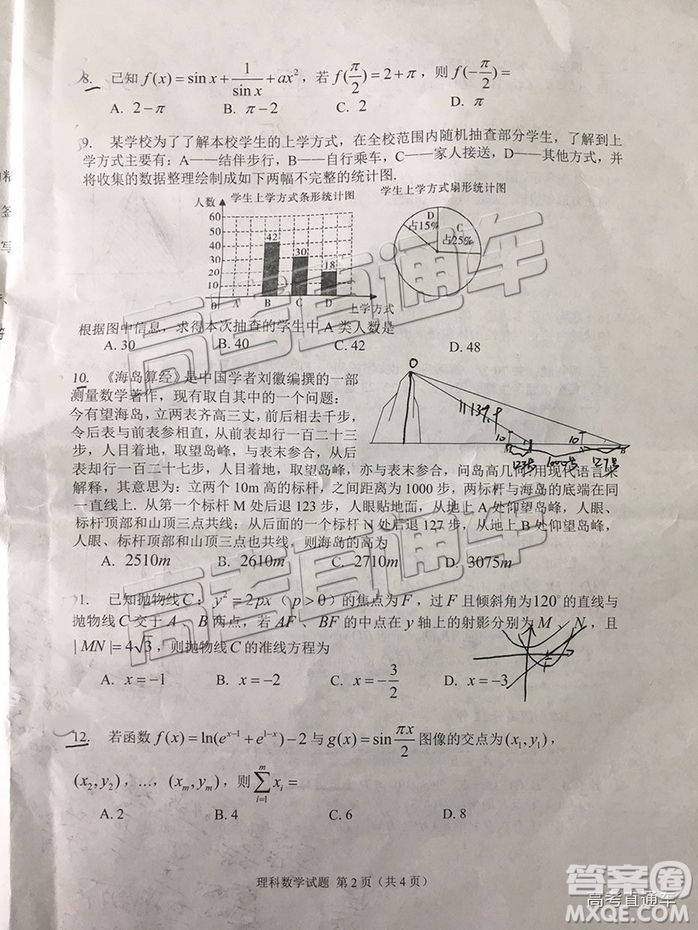 8. 已知 f(x)=sin x+1/sin x+ax²，若 f(π/2)=2+π，则 f(-π/2)=
A. 2-π B. π-2 C. 2 D. π
9. 某学校为了了解本校学生的上学方式，在全校范围内随机抽查部分学生，了解到上
学方式主要有：A——结伴步行，B——自行乘车，C——家人接送，D——其他方式，并
将收集的数据整理绘制成如下两幅不完整的统计图.
学生上学方式条形统计图 学生上学方式扇形统计图
人数
60
50
40
30
20
10
0
42
30
18
A B C D
上学方式
D
占15%
C
占25%
根据图中信息，求得本次抽查的学生中 A 类人数是
A. 30 B. 40 C. 42 D. 48
10. 《海岛算经》是中国学者刘徽编撰的一部
测量数学著作，现有取自其中的一个问题：
今有望海岛，立两表齐高三丈，前后相去千步，
令后表与前表参相直，从前表却行一百二十三
步，人目着地，取望岛峰，与表末参合，从后
表却行一百二十七步，人目着地，取望岛峰，亦与表末参合，问岛高几何？用现代语言来
解释，其意思为：立两个 10m 高的标杆，之间距离为 1000 步，两标杆与海岛的底端在同
一直线上．从第一个标杆 M 处后退 123 步，人眼贴地面，从地上 A 处仰望岛峰，人眼、
标杆顶部和山顶三点共线；从后面的一个标杆 N 处后退 127 步，从地上 B 处仰望岛峰，
人眼、标杆顶部和山顶三点也共线，则海岛的高为
A. 2510m B. 2610m C. 2710m D. 3075m
10
10
1000步
1. 已知抛物线 C：y²=2px（p>0）的焦点为 F，过 F 且倾斜角为120°的直线与
抛物线 C 交于 A、B 两点，若 AF、BF 的中点在 y 轴上的射影分别为 M、N，且
|MN|=4√3，则抛物线 C 的准线方程为
A. x=-1 B. x=-2 C. x=-3/2 D. x=-3
12. 若函数 f(x)=ln(e^(x-1)+e^(1-x))-2 与 g(x)=sin πx/2 图像的交点为(x₁,y₁)，
(x₂,y₂)，…，(xₘ,yₘ)，则 ∑_{i=1}^{m} xᵢ=
A. 2 B. 4 C. 6 D. 8
理科数学试题 第 2 页（共 4 页）
高考直通车
高考直通车
答案圈
MXQE.COM
高考直通车